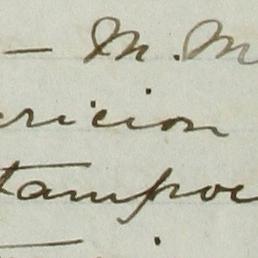 — M. M
ricion
tampoc